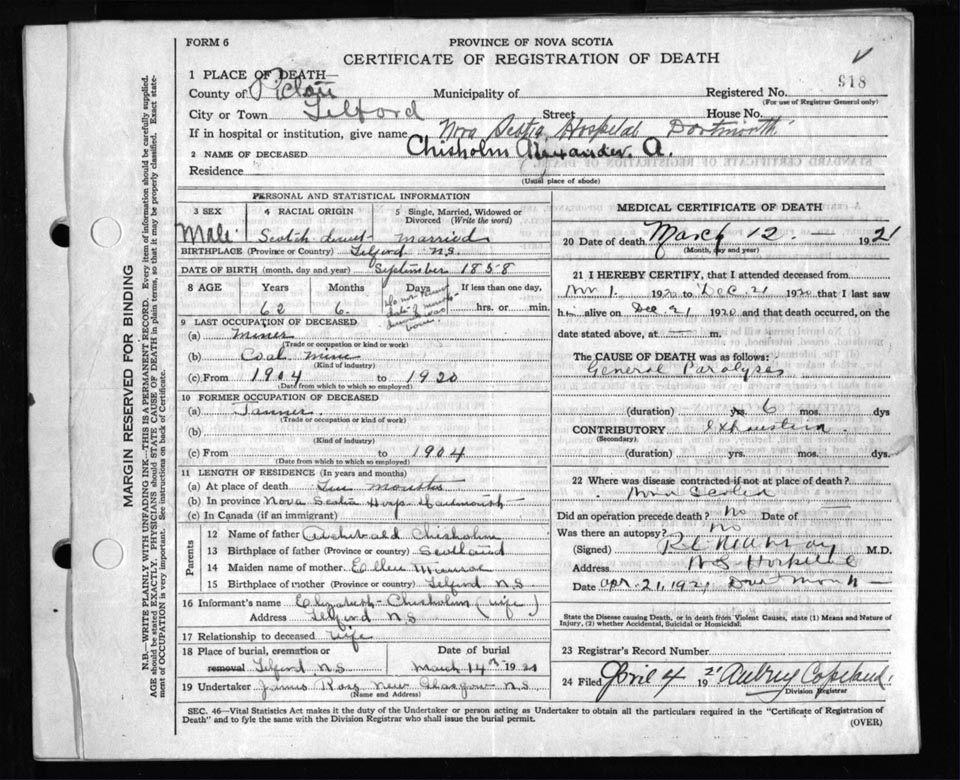 FORM 6
PROVINCE OF NOVA SCOTIA
CERTIFICATE OF REGISTRATION OF DEATH
1 PLACE OF DEATH—
918
County of Pictou Municipality of Registered No.
(For use of Registrar General only)
City or Town Telford Street House No.
If in hospital or institution, give name Nova Scotia Hospital Dartmouth
2 NAME OF DECEASED Chisholm Alexander. A.
Residence
(Usual place of abode)
PERSONAL AND STATISTICAL INFORMATION
3 SEX 4 RACIAL ORIGIN 5 Single, Married, Widowed or Divorced (Write the word)
Male Scotch married
BIRTHPLACE (Province or Country) Telford N.S.
DATE OF BIRTH (month, day and year) September 1858
8 AGE Years Months Days If less than one day,
62 6. hrs. or min.
9 LAST OCCUPATION OF DECEASED
(a) Miner
(Trade or occupation or kind or work)
(b) Coal mine
(Kind of industry)
(c) From 1904 to 1920
(Date from which to which so employed)
10 FORMER OCCUPATION OF DECEASED
(a)
(Trade or occupation or kind or work)
(b)
(Kind of industry)
(c) From to 1904
(Date from which to which so employed)
11 LENGTH OF RESIDENCE (In years and months)
(a) At place of death months
(b) In province Nova Scotia Hosp Dartmouth
(c) In Canada (if an immigrant)
Parents
12 Name of father Archibald Chisholm
13 Birthplace of father (Province or country) Scotland
14 Maiden name of mother Ellen Munroe
15 Birthplace of mother (Province or country) Telford N.S
16 Informant's name Elizabeth Chisholm (wife)
Address Telford N S
17 Relationship to deceased wife
18 Place of burial, cremation or Date of burial
removal Telford N.S. March 14th 1921
19 Undertaker James Ross New Glasgow N.S
(Name and Address)
MEDICAL CERTIFICATE OF DEATH
20 Date of death March 12 — 1921
(Month, day and year)
21 I HEREBY CERTIFY, that I attended deceased from
1920 to Dec. 21 1920 that I last saw
him alive on Dec. 21 1920 and that death occurred, on the
date stated above, at — m.
The CAUSE OF DEATH was as follows:
General Paralyses
(duration) yrs. 6 mos. dys
CONTRIBUTORY exhaustion
(Secondary)
(duration) yrs. mos. dys.
22 Where was disease contracted if not at place of death?
Did an operation precede death? no Date of —
Was there an autopsy? no
(Signed) M.D.
Address N S Hospital
Date Apr. 21, 1921 Dartmouth
State the Disease causing Death, or in death from Violent Causes, state (1) Means and Nature of
Injury, (2) whether Accidental, Suicidal or Homicidal.
23 Registrar's Record Number
24 Filed April 4 1921 Aubrey Copeland.
Division Registrar
SEC. 46—Vital Statistics Act makes it the duty of the Undertaker or person acting as Undertaker to obtain all the particulars required in the "Certificate of Registration of
Death" and to fyle the same with the Division Registrar who shall issue the burial permit.
(OVER)
MARGIN RESERVED FOR BINDING
N.B.—WRITE PLAINLY WITH UNFADING INK—THIS IS A PERMANENT RECORD. Every item of information should be carefully supplied.
AGE should be stated EXACTLY. PHYSICIANS should STATE CAUSE OF DEATH in plain terms, so that it may be properly classified. Exact statement of OCCUPATION is very important. See instructions on back of Certificate.